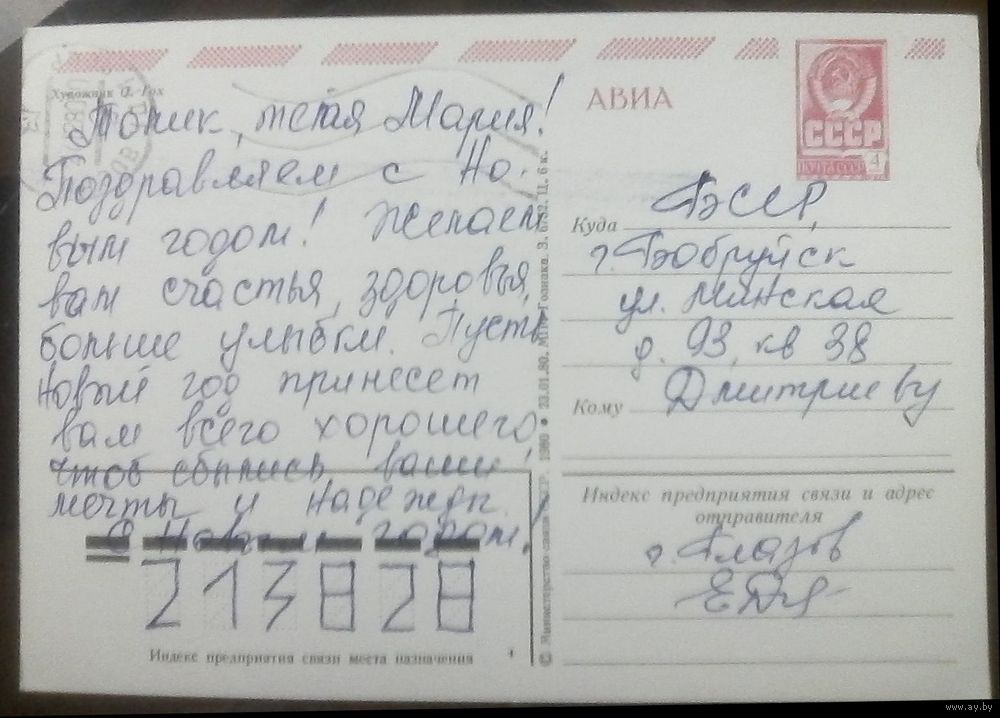 Художник А. Рох
Толик, тётя Мария!
Поздравляем с Но-
вым годом! Желаем
вам счастья, здоровья,
больше улыбки. Пусть
новый год принесет
вам всего хорошего,
чтоб сбылись ваши
мечты и надежды.
С Новым годом!
213828
Индекс предприятия связи места назначения
© Министерство связи СССР. 1980 • 23.01.80. МПФ Гознака. З. Ц. 6 к.
АВИА
СССР
ПОЧТА СССР
4
Куда БССР,
г. Бобруйск
ул. Минская
д. 93, кв 38
Кому Дмитриеву
Индекс предприятия связи и адрес
отправителя
г. Глазов
www.ay.by